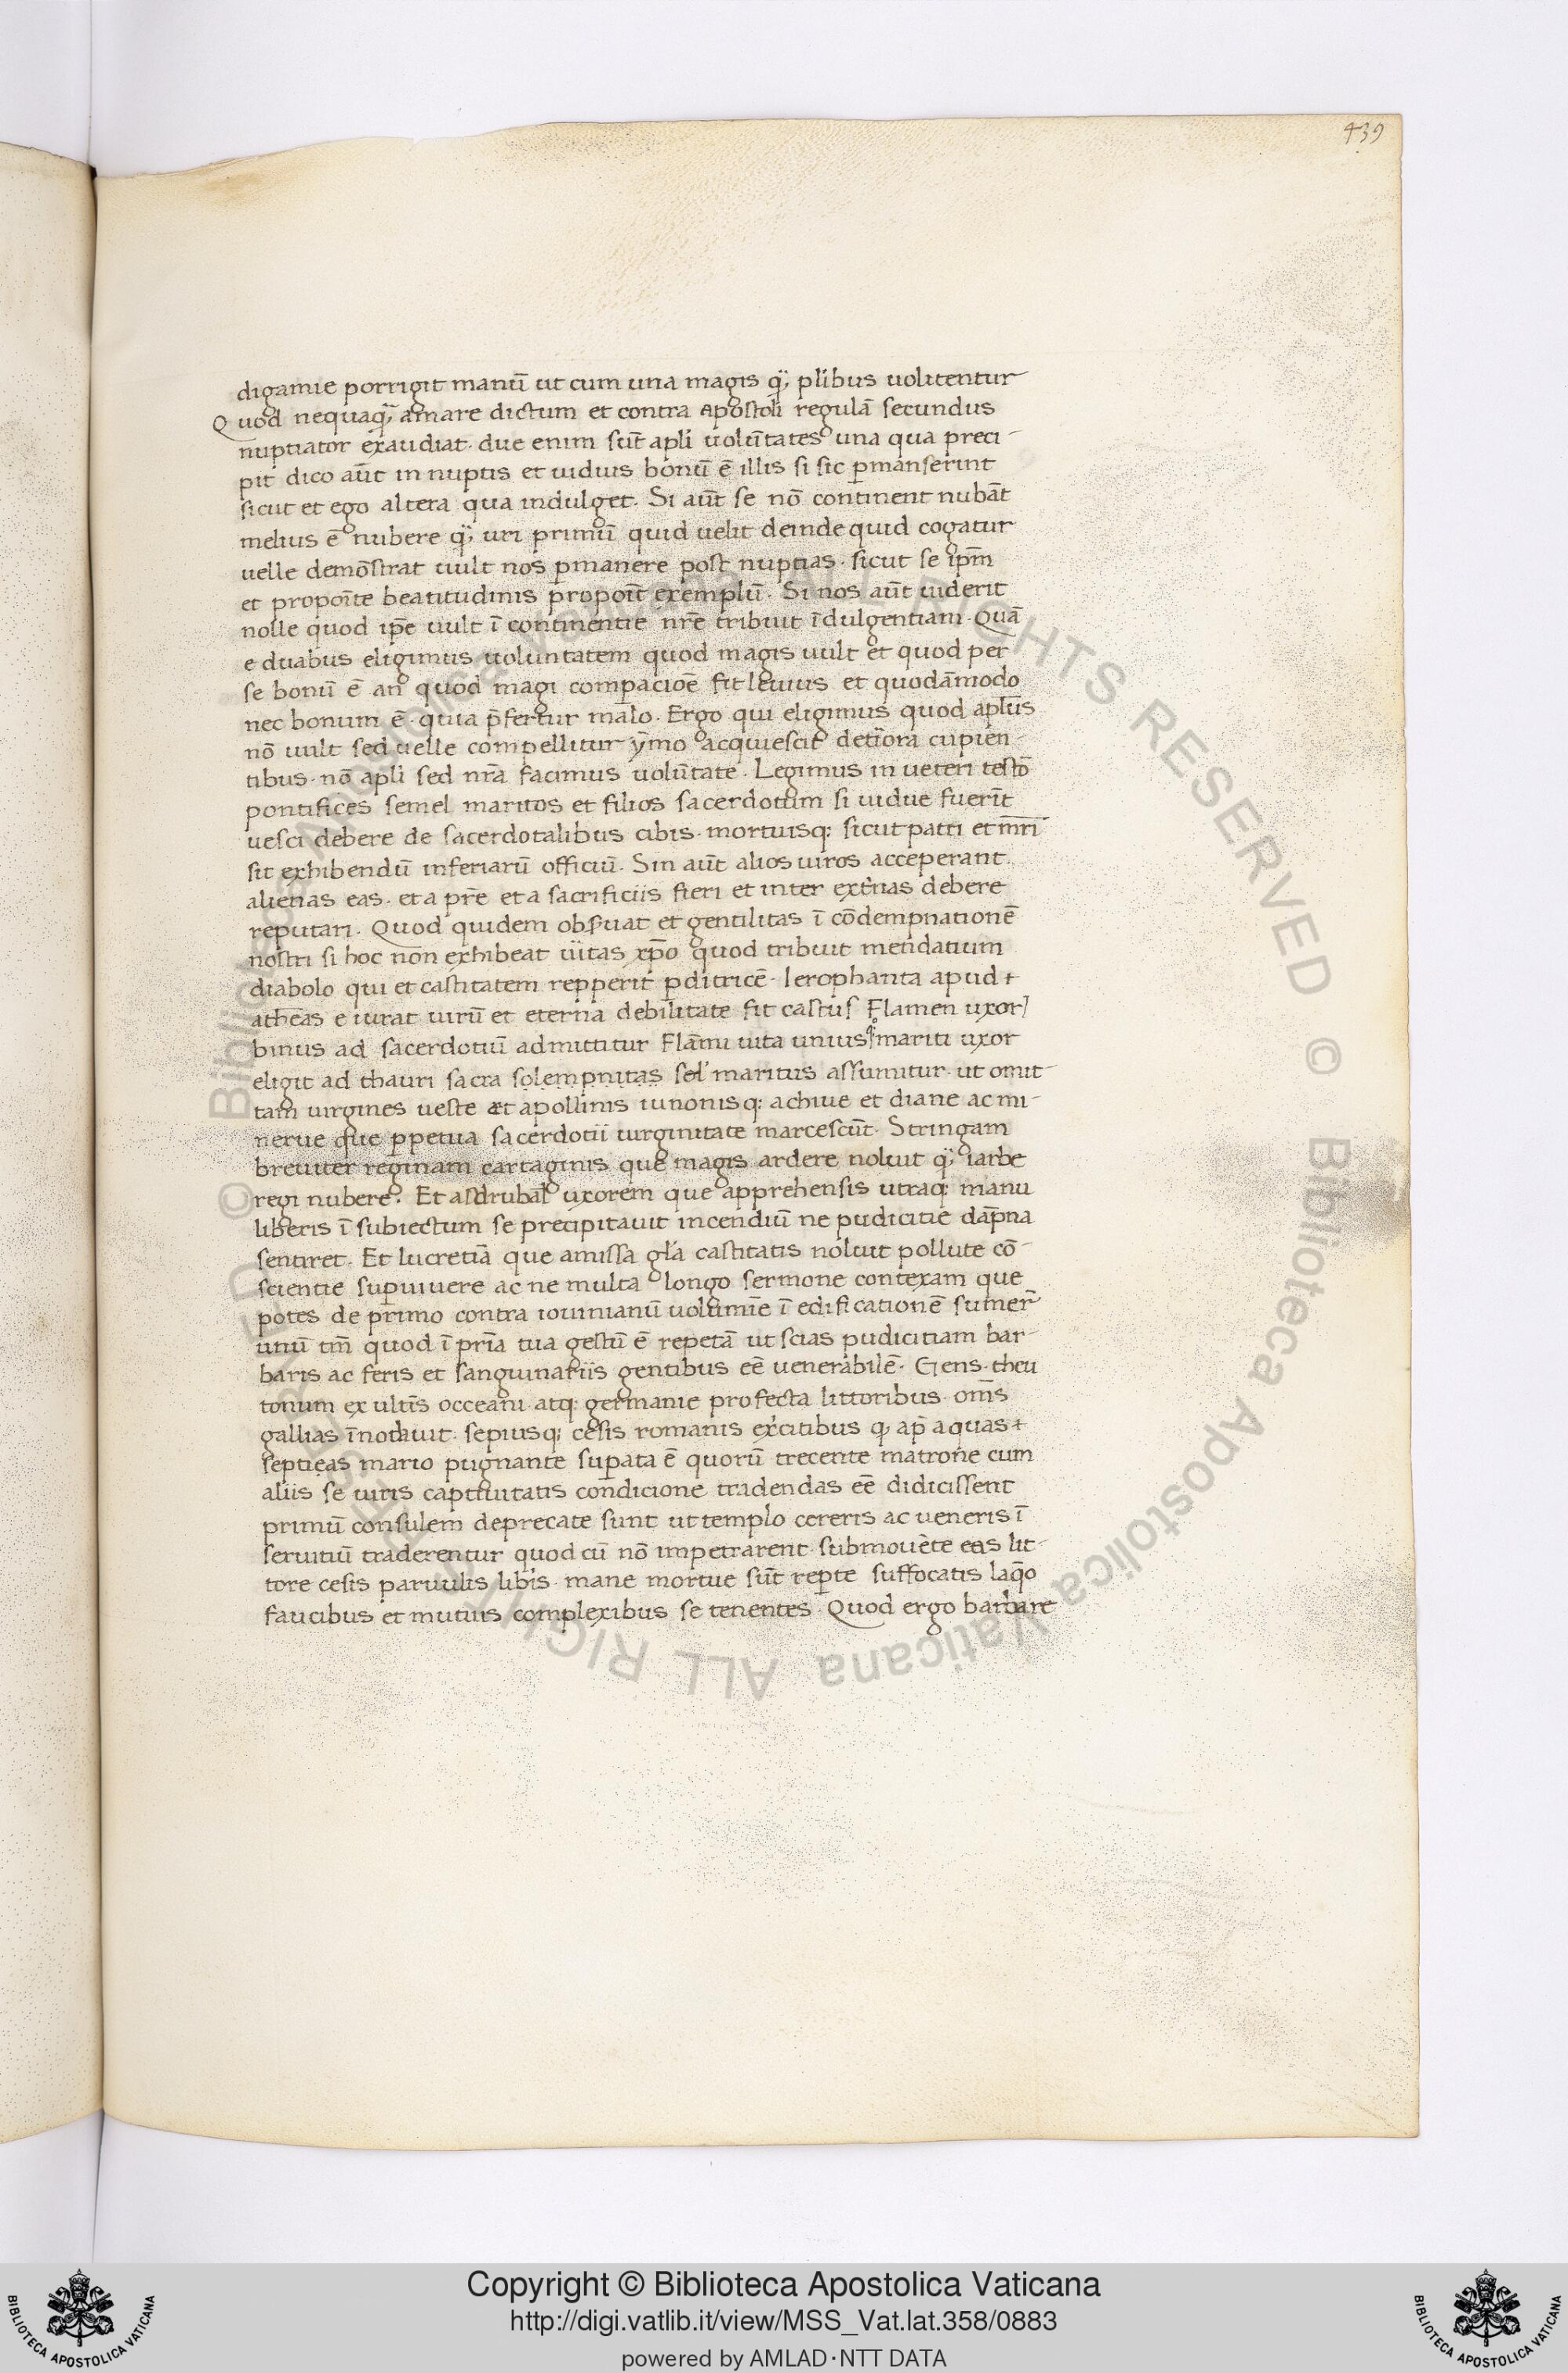 439
digamie porrigit manū ut cum una magis q̃; pl̃ibus uolutentur
Quod nequaq̃; amare dictum et contra apostoli regulā secundus
nuptiator exaudiat. due enim sūt apli uolūtates una qua preci-
pit dico aūt in nuptis et uiduis bonū ē illis si sic p̱manserint
sicut et ego altera qua indulget. Si aūt se nō continent nubāt
melius ē nubere q̃; uri primū quid uelit deinde quid cogatur
uelle demōstrat uult nos p̱manere post nuptias. sicut se ip̄m
et propoīte beatitudinis propoīt exemplū. Si nos aūt uiderit
nolle quod ip̄e uult ī continentie nr̄e tribuit īdulgentiam. Quā
e duabus eligimus uoluntatem quod magis uult et quod per
se bonū ē an quod magi comp̱acioē fit leuius et quodāmodo
nec bonum ē. quia p̄fertur malo. Ergo qui eligimus quod apl̄us
nō uult sed uelle compellitur ymo acquiescit deteriora cupien-
tibus. nō apli sed nr̄a facimus uolūtate. Legimus in ueteri testō
pontifices semel maritos et filios sacerdotum si uidue fuerīt
uesci debere de sacerdotalibus cibis. mortuisq: sicut patri et mr̄i
sit exhibendū inferiarū officiū. Sin aūt alios uiros acceperant.
alienas eas. et a pr̄e et a sacrificiis fieri et inter ext̄nas debere
reputari. Quod quidem obs̱uat et gentilitas ī cōdempnationē
nostri si hoc non exhibeat ūitas xp̄o quod tribuit mendatium
diabolo qui et castitatem repperit p̱ditricē. Ierophanta apud +
atheas e iurat uirū et eterna debilitate fit castus Flamen uxor]
binus ad sacerdotiū admittitur Flam̄i uita unius q̊ mariti uxor
eligit ad thauri sacra solempnitas sel' maritus assumitur. ut omit-
tam uirgines ueste et apollinis iunonisq: achiue et diane ac mi-
nerue que p̱petua sacerdotii uirginitate marcescūt. Stringam
breuiter reginam cartaginis que magis ardere noluit q̃; iarbe
regi nubere. Et asdrubal uxorem que apprehensis utraq: manu
liberis ī subiectum se precipitauit incendiū ne pudicitie dap̄na
sentiret. Et lucretiā que amissa gl̄a castitatis noluit pollute cō-
scientie sup̱uiuere ac ne multa longo sermone contexam que
potes de primo contra iouinianū uolumīe ī edificationē sumer̄
unū tm̄ quod ī pr̄ia tua gestū ē repetā ut scias pudicitiam bar-
baris ac feris et sanguinariis gentibus eē uenerabilē. Gens. theu
tonum ex ultīs occeani. atq: germanie profecta littoribus. om̄s
gallias īnodauit. sepiusq; cesis romanis exc̄itibus q, ap̄ aquas +
septieas mario pugnante sup̱ata ē quorū trecente matrone cum
aliis se uiris captiuitatis condicione tradendas eē didicissent
primū consulem deprecate sunt ut templo cereris ac ueneris ī
seruitiū traderentur quod cū nō impetrarent. submouēte eas lit-
tore cesis paruulis lib̄is. mane mortue sūt rep̱te suffocatis laq̄o
faucibus et mutuis complexibus se tenentes. Quod ergo barbare
© Biblioteca Apostolica Vaticana ALL RIGHTS RESERVED
Copyright © Biblioteca Apostolica Vaticana
http://digi.vatlib.it/view/MSS_Vat.lat.358/0883
powered by AMLAD·NTT DATA
BIBLIOTECA APOSTOLICA VATICANA
BIBLIOTECA APOSTOLICA VATICANA